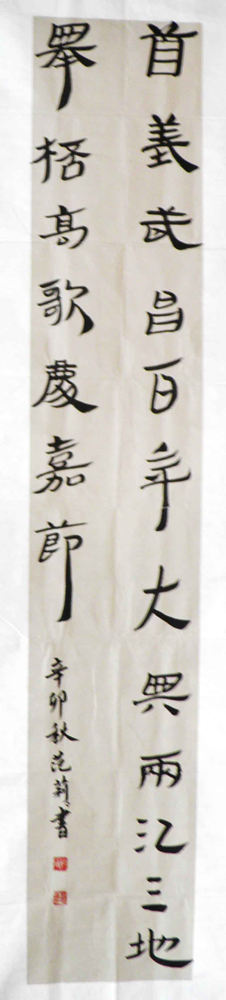 首義武昌百年大典兩江三地
舉桮高歌慶嘉節
辛卯秋范莉書